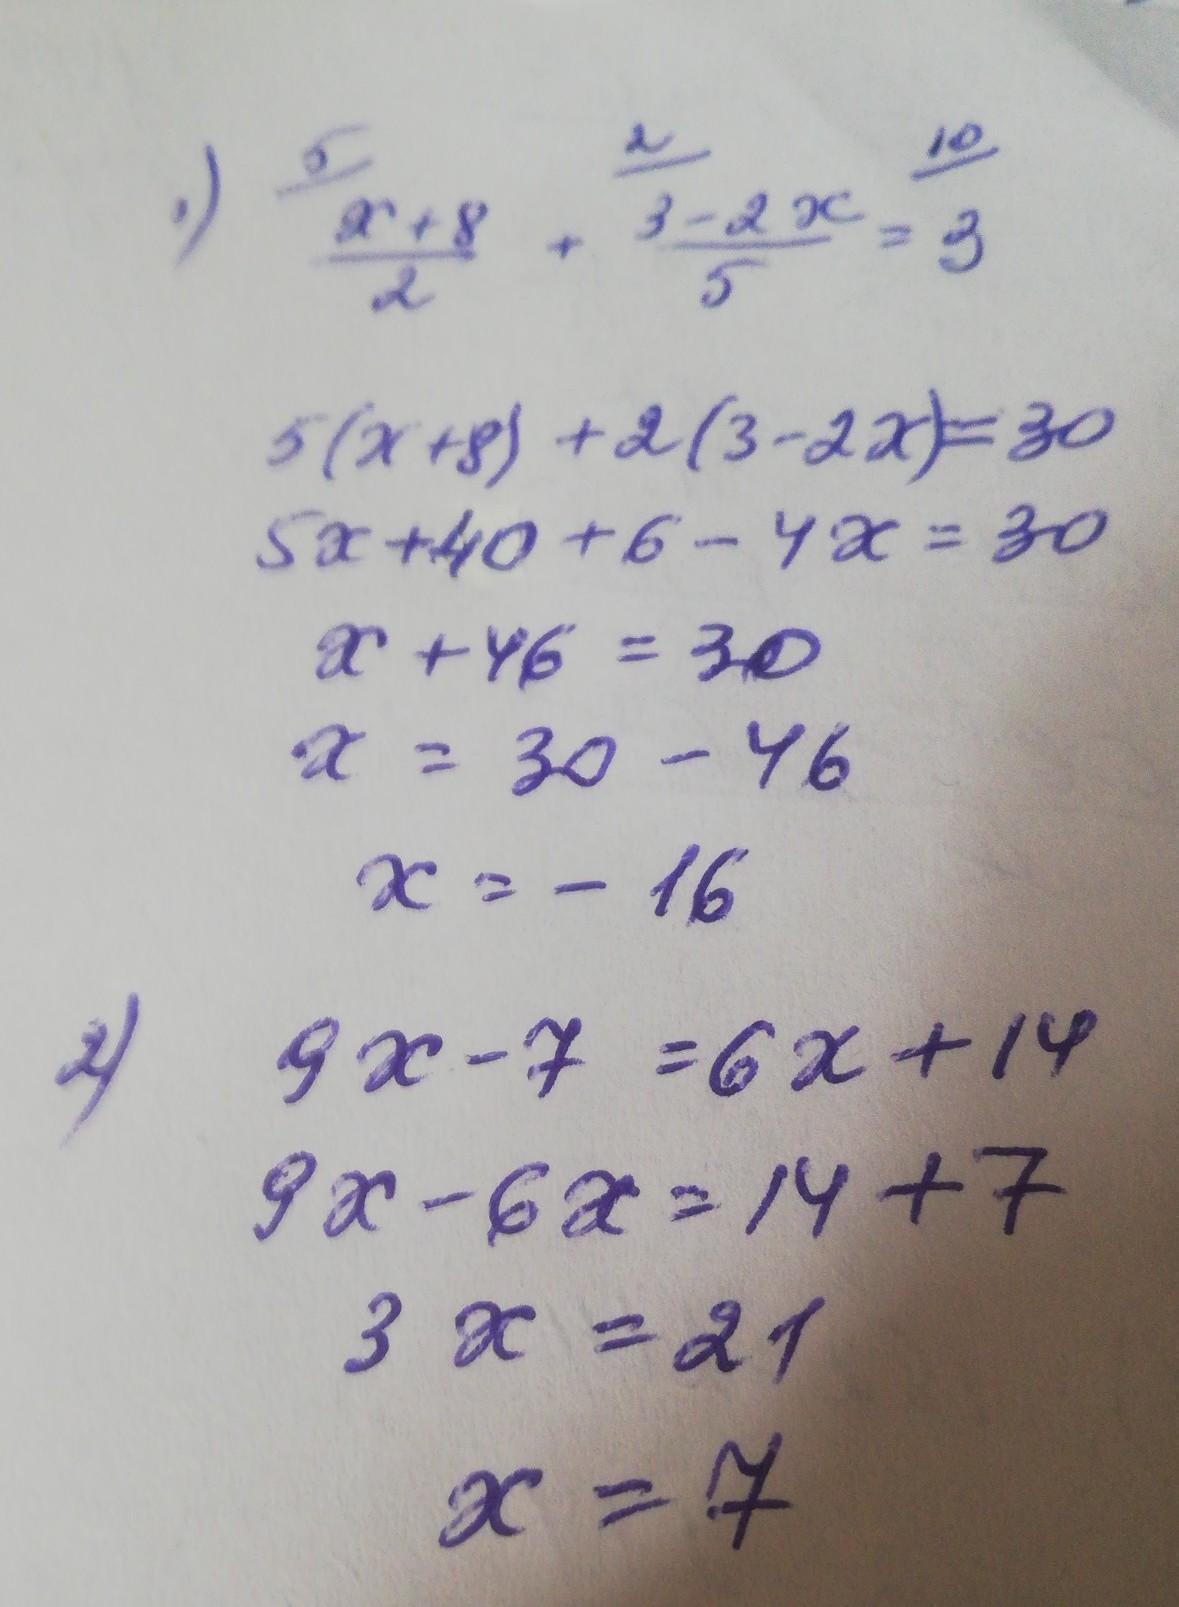 1) 5/ (x+8)/2 + 2/ (3-2x)/5 = 10/ 3
5(x+8) + 2(3-2x) = 30
5x+40+6-4x=30
x+46=30
x=30-46
x=-16
2) 9x-7=6x+14
9x-6x=14+7
3x=21
x=7